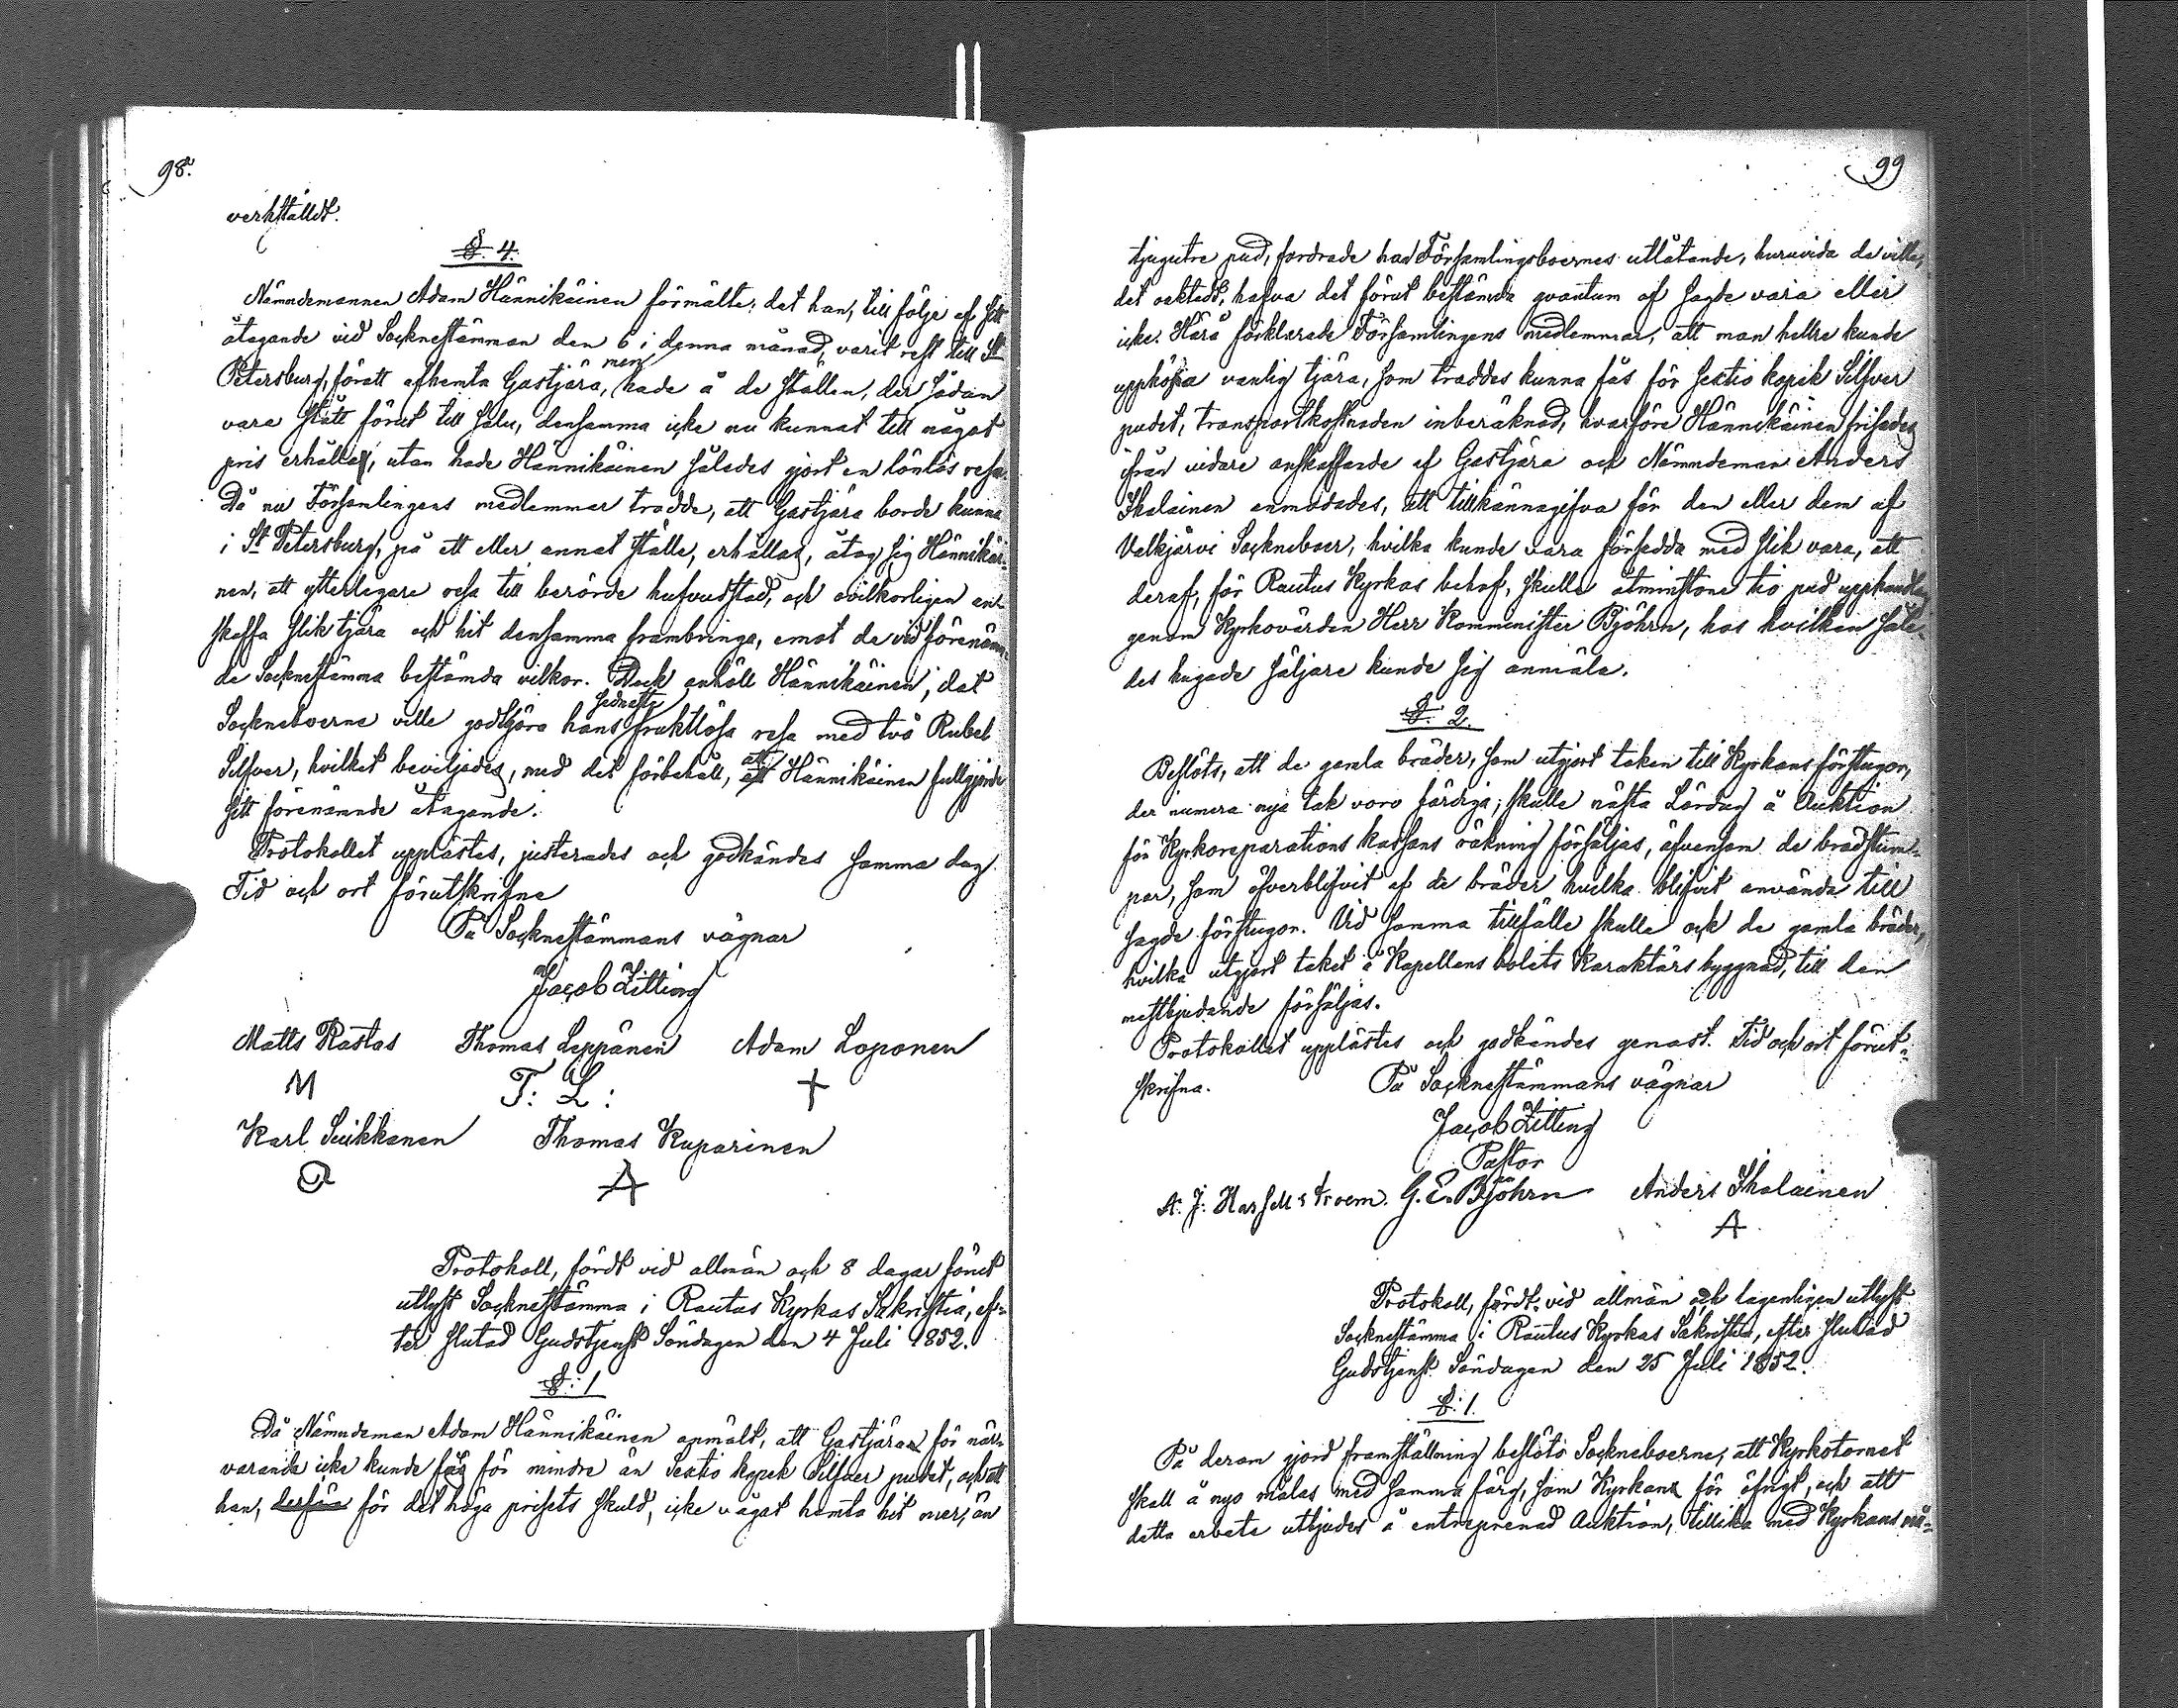 98.
verkstäldt.
§. 4.
Nämndemannen Adam Hännikäinen förmälte: det han, till följe af sitt
åtagande vid Socknestämman den 6 i denna månad, varit rest till St
Petersburg, föratt afhemta Gastjära, men hade å de ställen, der sådan
vara stått förut till salu, densamma icke nu kunnat till något
pris erhållas, utan hade Hännikäinen således gjort en lönlös resa.
Då nu Församlingens medlemmar trodde, att Gastjära borde kunna
i St Petersburg, på ett eller annat ställe, erhållas, åtog sig Hännikäi-
nen, att ytterligare resa till berörde hufvudstad, och ovilkorligen an-
skaffa slik tjära och hit densamma frambringa, emot de vid förenämn-
de Socknestämma bestämda vilkor. Dock anhöll Hännikäinen, det
Sockneboerne ville godtgöra hans sednaste fruktlösa resa med två Rubel
Silfver, hvilket beviljades, med det förbehåll, att Hännikäinen fullgjorde
sitt förenämnde åtagande.
Protokollet upplästes, justerades och godkändes samma dag.
Tid och ort förutskrifne
På Socknestämmans vägnar
Jacob Zitting
Matts Rastas Thomas Leppänen Adam Loponen
M T: L: +
Karl Suikkanen Thomas Kuparinen
A
Protokoll, fördt vid allmän och 8 dagar förut
utlyst Socknestämma i Rautus Kyrkas Sakristia, ef-
ter slutad Gudstjenst Söndagen den 4 Juli 1852.
§: 1
Då Nämndeman Adam Hännikäinen anmält, att Gastjära för när-
varande icke kunde fås för mindre än Sextio kopek Silfver pudet, och att
han, derföre för det höga prisets skuld, icke vågat hemta hit mer, än
99
tjugutre pud, fordrade han Församlingsboernes utlåtande, huruvida de ville,
det oaktadt, hafva det förut bestämda qvantum af sagde vara eller
icke. Härå förklarade Församlingens medlemmar, att man hellre kunde
uppköpa vanlig tjära, som troddes kunna fås för sextio kopek Silfver
pudet, transportkostnaden inberäknad, hvarföre Hännikäinen frisades
ifrån vidare anskaffande af Gastjära och Nämndeman Anders
Ihalainen anmodades, att tillkännagifva för den eller dem af
Valkjärvi Sockneboer, hvilka kunde vara försedda med slik vara, att
deraf, för Rautus Kyrkas behof, skulle åtminstone tio pud upphandlas
genom Kyrkovärden Herr Kommenister Björhn, hos hvilken såle-
des hugade säljare kunde sig anmäla.
§. 2.
Beslöts, att de gamla bräder, som utgjort taken till Kyrkans förstugor,
der numera nya tak voro färdiga, skulle nästa Lördag å Auktion
för Kyrkoreparations kassans räkning försäljas, äfvensom de brädstum-
par, som öfverblifvit af de bräder hvilka blifvit använda till
sagde förstugor. Vid samma tillfälle skulle ock de gamla bräder,
hvilka utgjort taket å Kapellans bolets Karaktärs byggnad, till den
mestbjudande försäljas.
Protokollet upplästes och godkändes genast. Tid och ort förut-
skrifna. På Socknestämmans vägnar
Jacob Zitting
Pastor
A. J. G. E. Björhn Anders Ihalainen
A
Protokoll, fördt vid allmän och lagenligen utlyst
Socknestämma i Rautus Kyrkas Sakristia, efter slutad
Gudstjenst Söndagen den 25 Juli 1852.
§: 1.
På derom gjord framställning beslöto Sockneboerne, att Kyrkotornet
skall å nyo målas med samma färg, som Kyrkan för öfrigt, och att
detta arbete utbjudes å entreprenad Auktion, tillika med Kyrkans